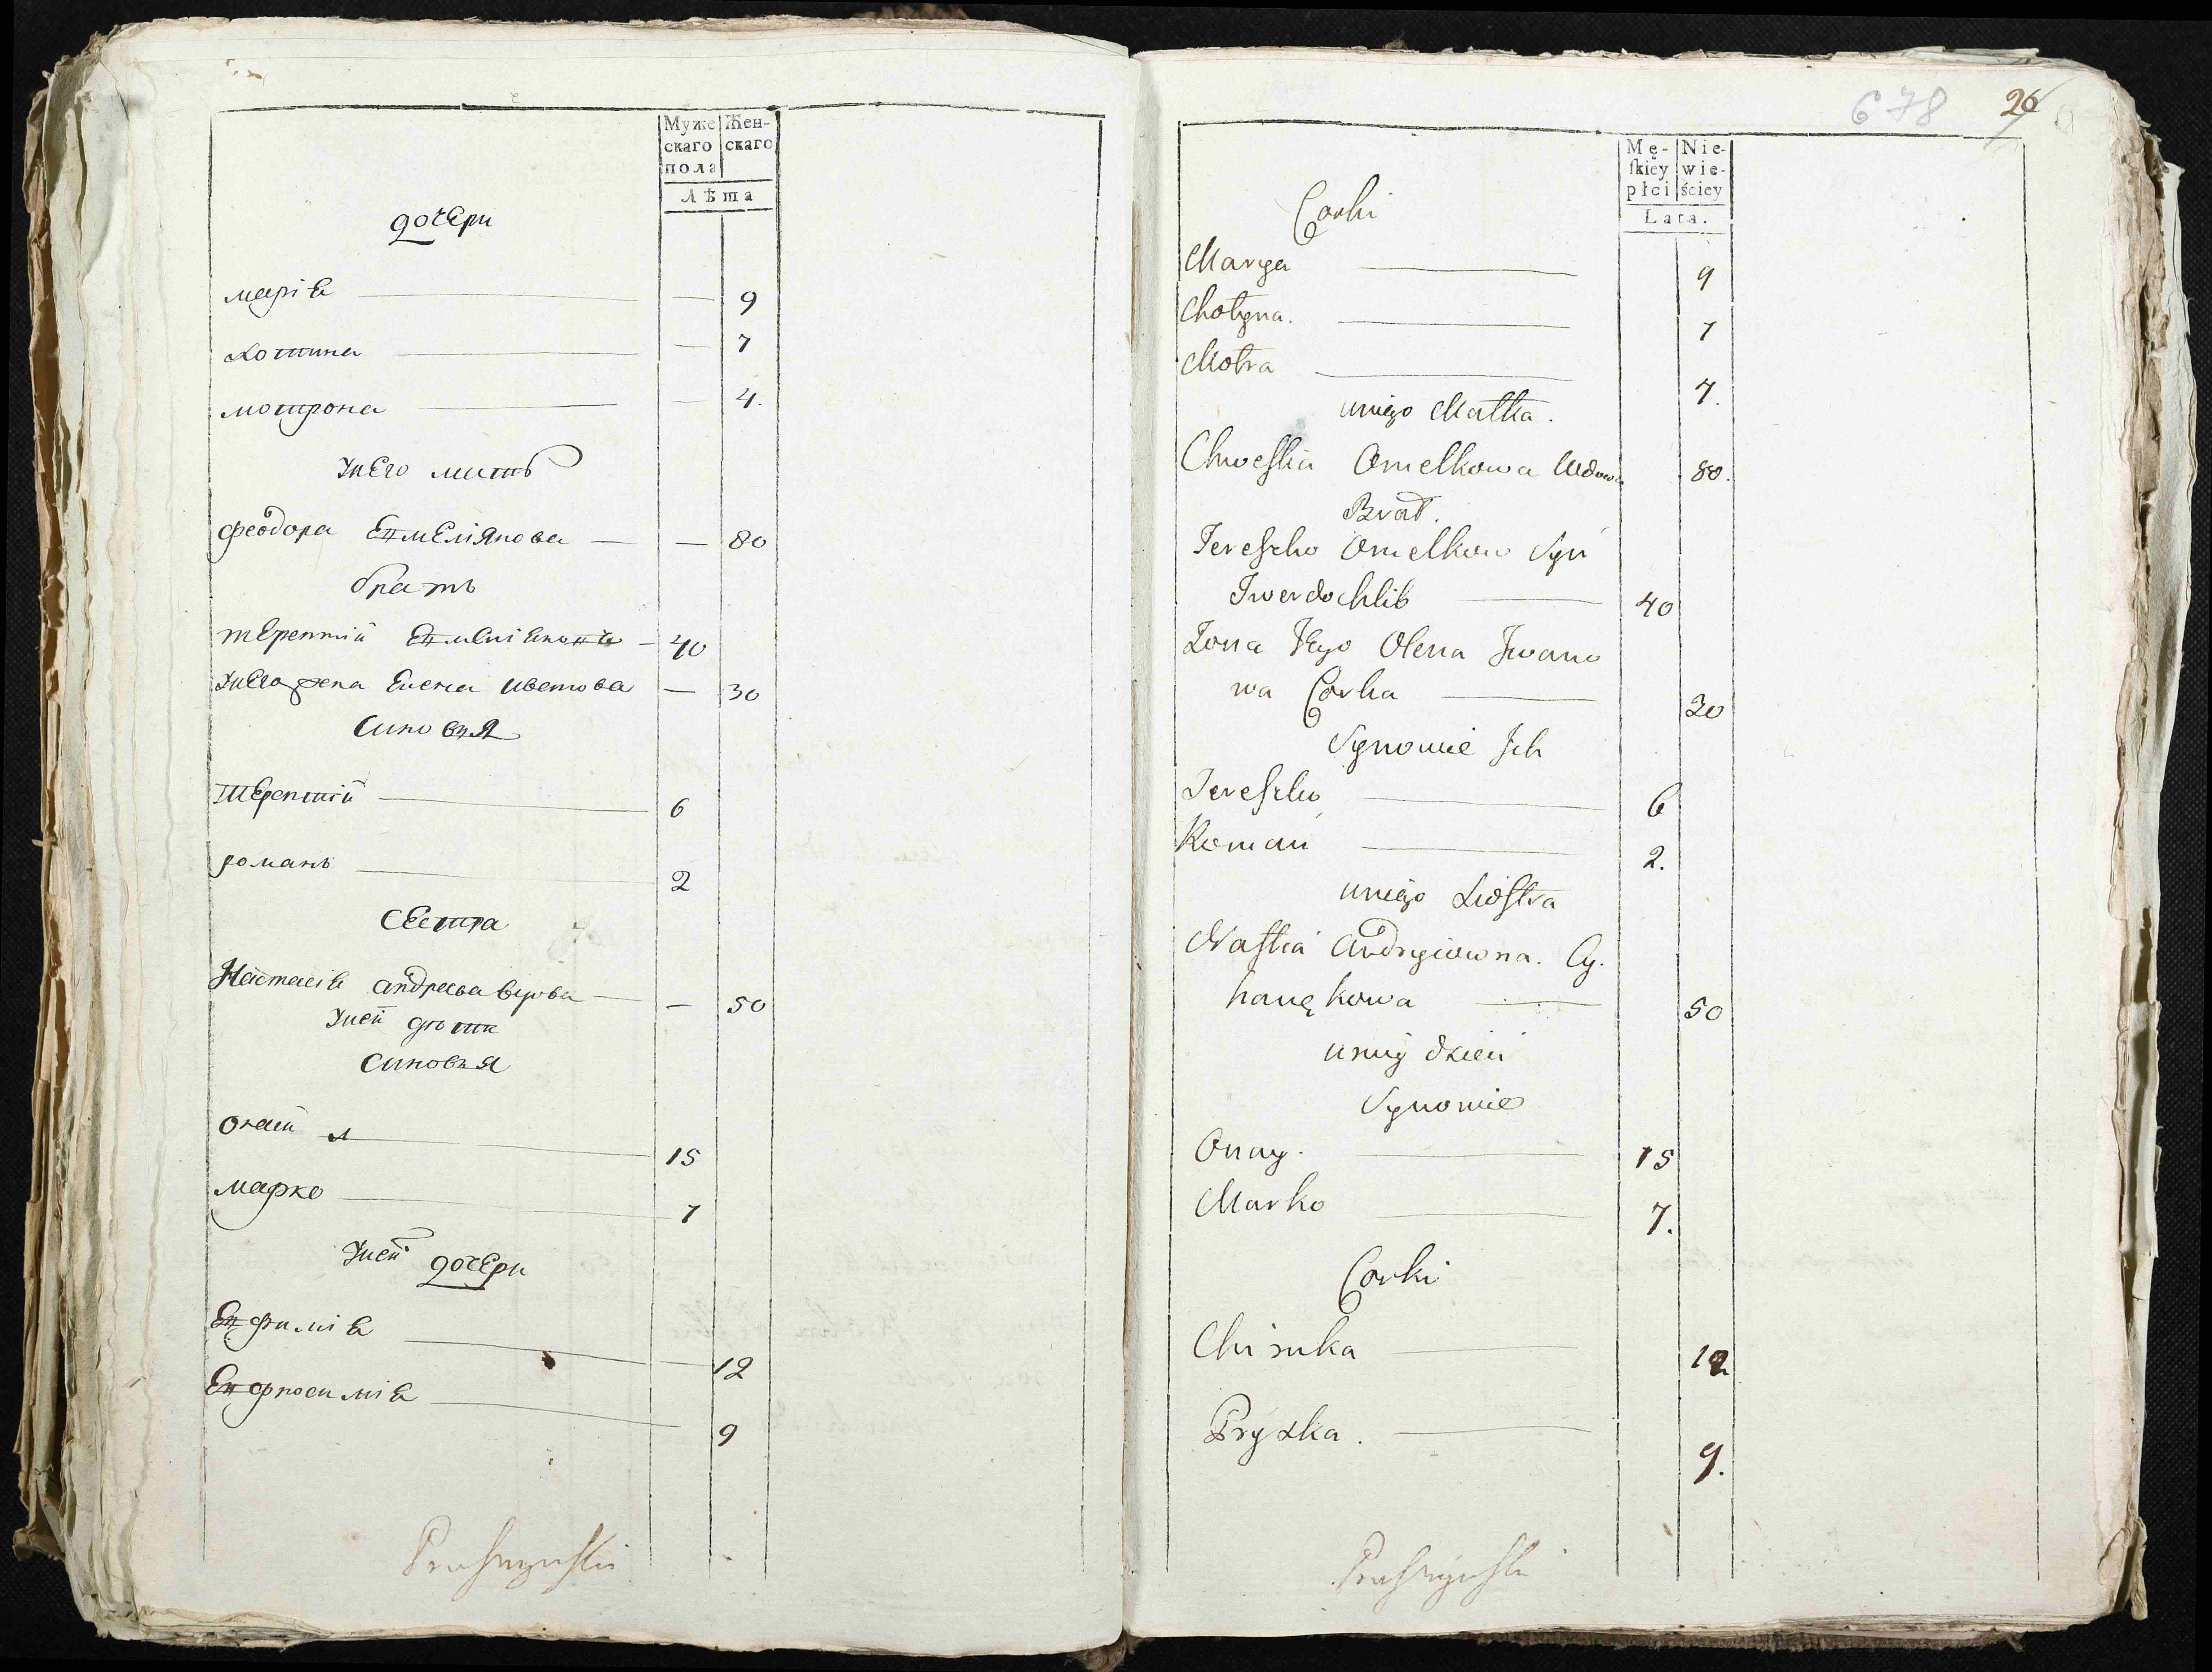 Муже Жен-
скаго скаго
пола
Лѣта
дочери
маріа — 9
хотина — 7
мотрона — 4.
унего мать
феодора Емеліянова — 80
братъ
терентій — 40
унего жена Елена иванова — 30
Синовья
Терентій 6
романъ 2
Сестра
Настасіа андреева вдова — 50
уней дѣти
Синовья
онай 15
марко 7
уней дочери
Ефиміа 12
9
678 26
Mę- Nie-
skiey wie-
płci ściey
Lata.
Corki
Marya 9
Chotyna. 7
Motra 4.
uniego Matka.
Chwestia Omelkowa Wdowa 80.
Brat.
Tereszko Omelkow Syn
Twerdochlib 40
Zona Jego Olena Jwano
wa Corka 30
Synowie Jch
Tereszko 6
Roman 2.
uniego Siostra
Nastia Andryiowna. Cy.
hanękowa 50
uniey dzieci
Synowie
Onay. 15
Marko 7.
Corki
Chimka 12
Pryska. 9.